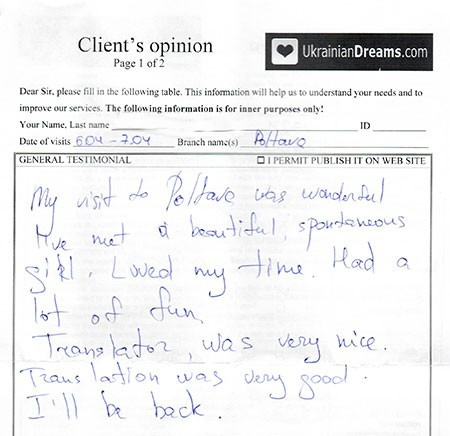 Client's opinion
UkrainianDreams.com
Page 1 of 2
Dear Sir, please fill in the following table. This information will help us to understand your needs and to
improve our services. The following information is for inner purposes only!
Your Name, Last name ID
Date of visits 6.04 - 7.04 Branch name(s) Poltava
GENERAL TESTIMONIAL ☐ I PERMIT PUBLISH IT ON WEB SITE
My visit to Poltava was wonderful
I've met a beautiful, spontaneous
girl. Loved my time. Had a
lot of fun.
Translator, was very nice.
Translation was very good.
I'll be back.